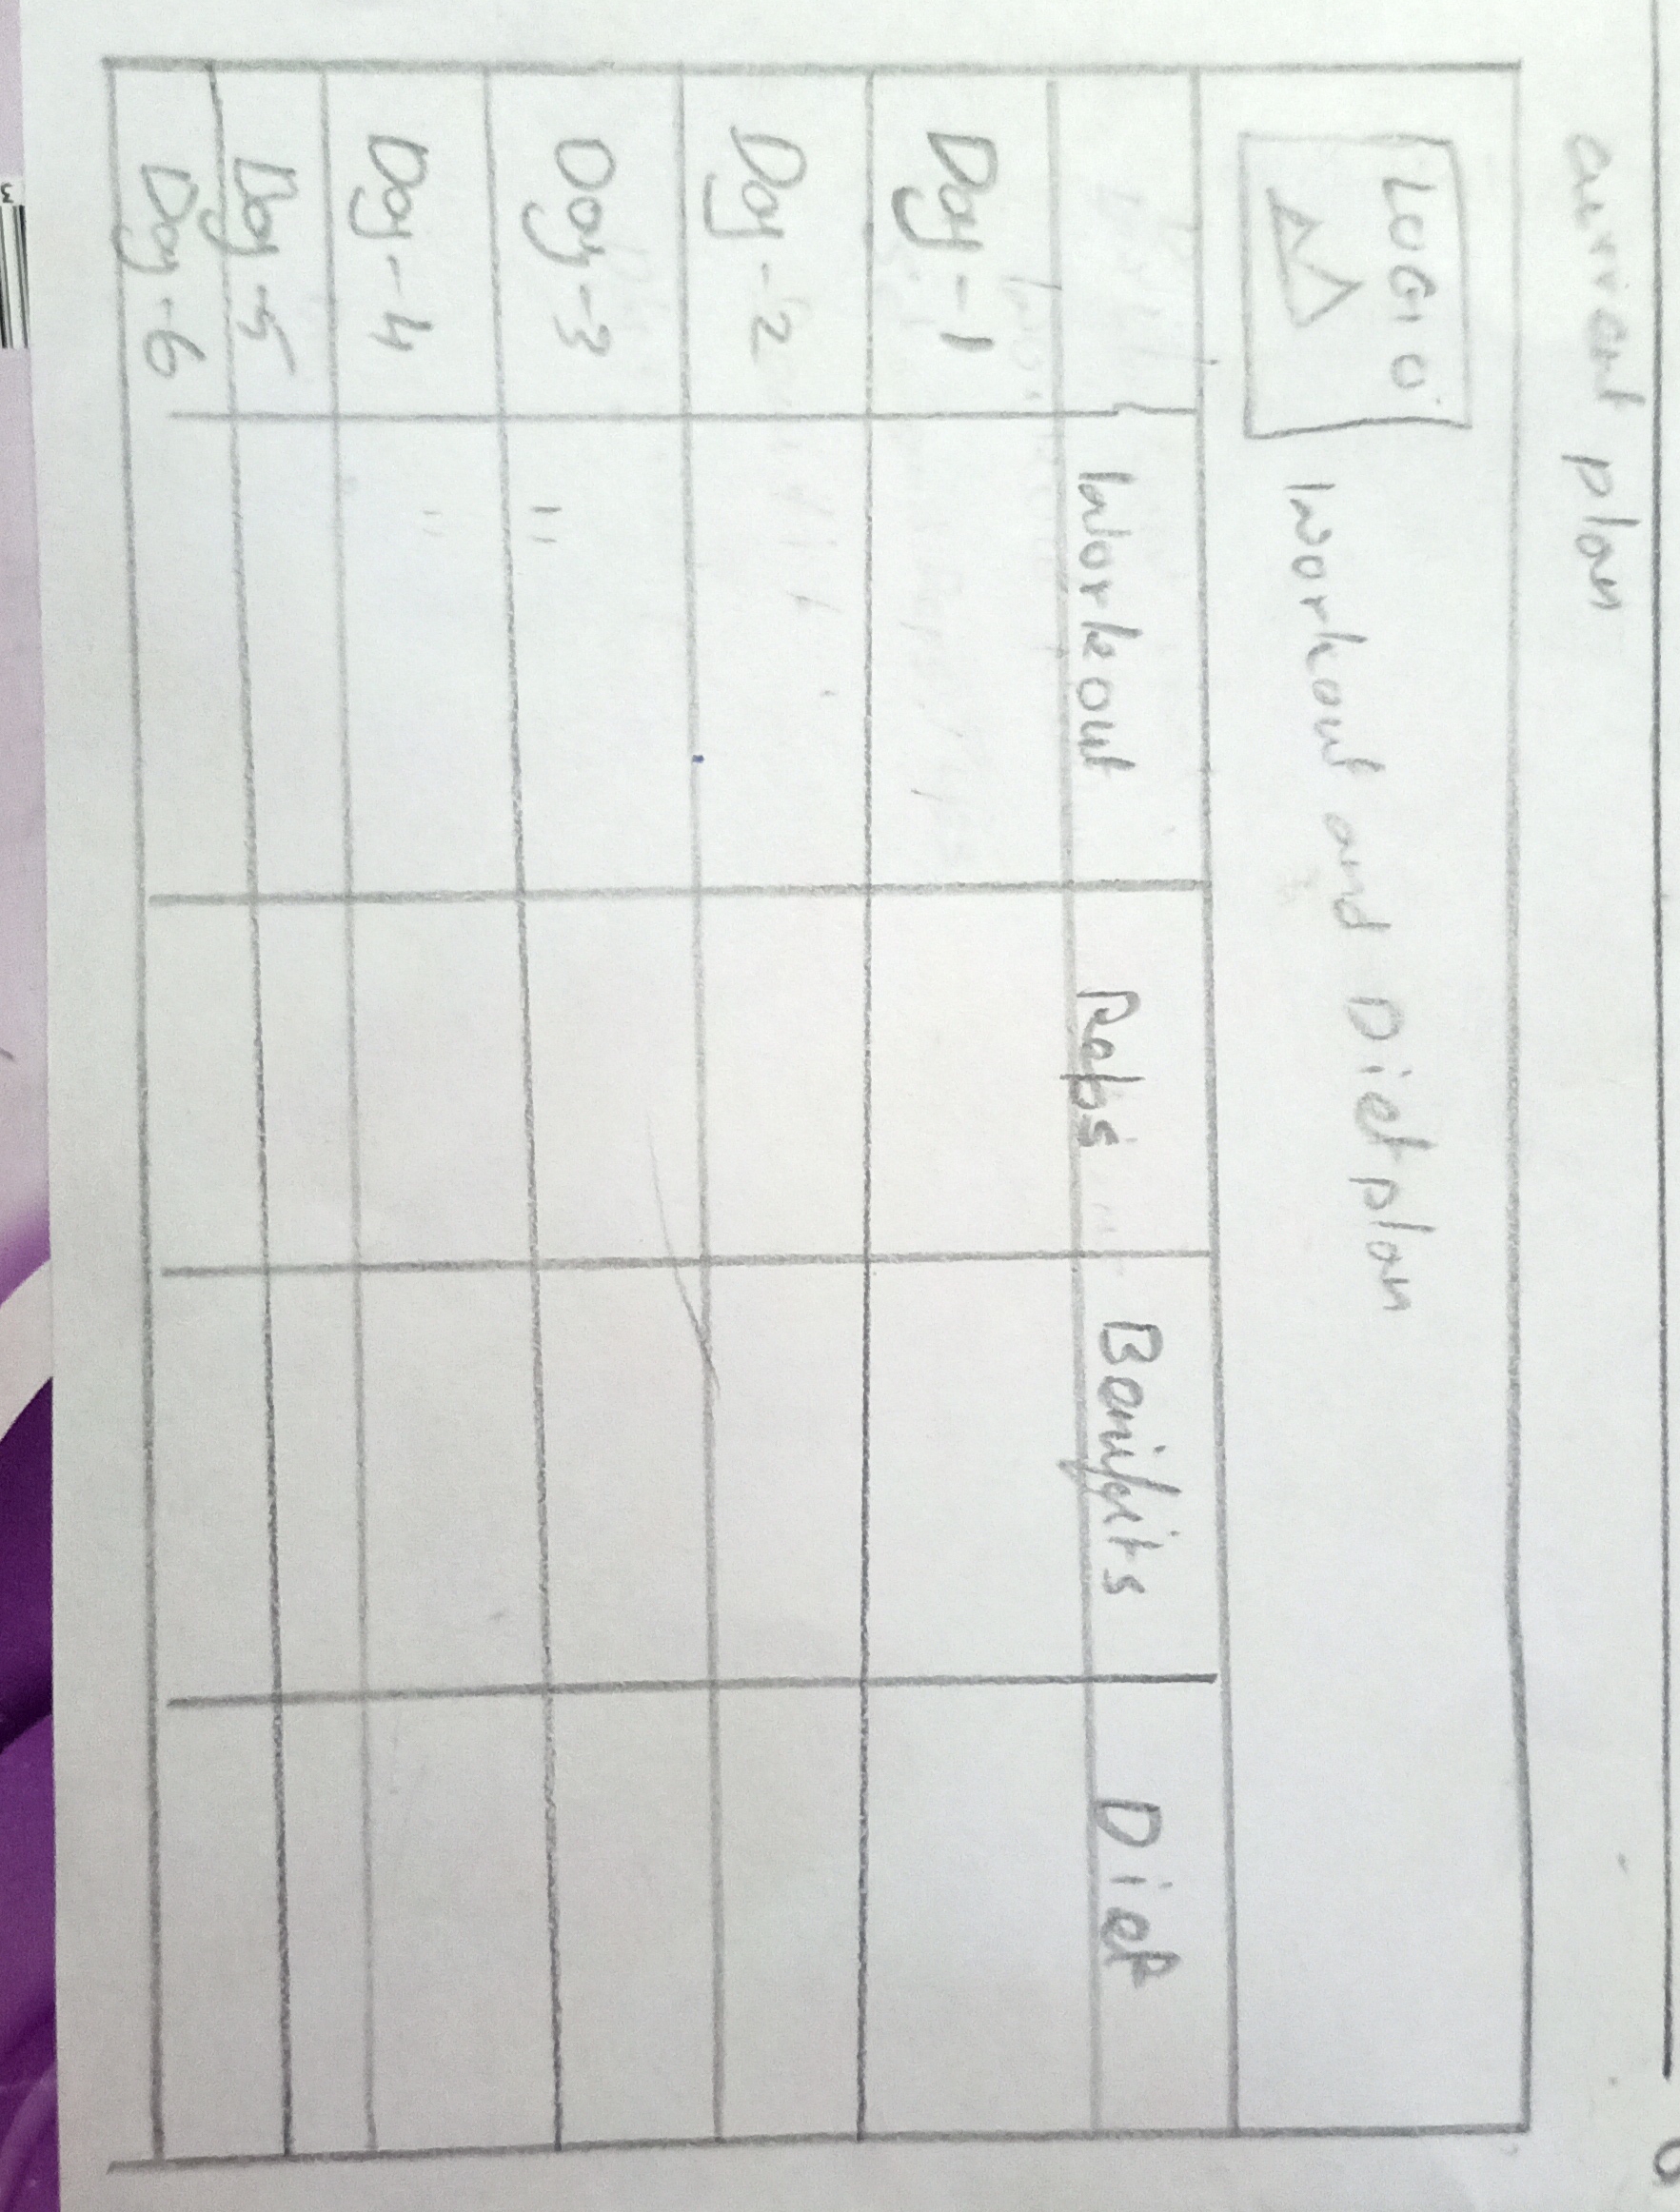 current plan
LOGO
Workout and Diet plan
Workout Reps Benifits Diet
Day-1
Day-2
Day-3 "
Day-4 "
Day-5
Day-6